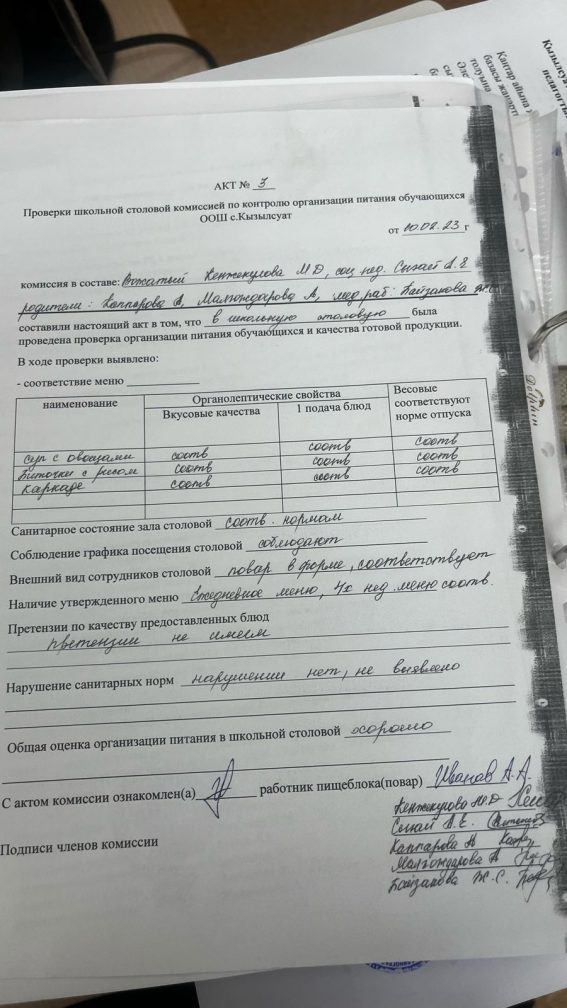 Кызылсу
педагогты
Қаңтар айына
базасы жаңарт
толуына
АКТ № 3
Проверки школьной столовой комиссией по контролю организации питания обучающихся
ООШ с.Кызылсуат
от 10.02.23 г
комиссия в составе: Вожатый Кенжекулова М Д, соц пед. Сынай А.Е
родители: Каппарова А, Малгондарова А, мед раб: Байзакова Ж.С
составили настоящий акт в том, что в школьную столовую была
проведена проверка организации питания обучающихся и качества готовой продукции.
В ходе проверки выявлено:
- соответствие меню
наименование Органолептические свойства Весовые соответствуют норме отпуска
Вкусовые качества 1 подача блюд
суп с овощами соотв соотв соотв
Биточки с рисом соотв соотв соотв
каркаде соотв соотв соотв
Санитарное состояние зала столовой соотв. нормам
Соблюдение графика посещения столовой соблюдают
Внешний вид сотрудников столовой повар в форме, соответствует
Наличие утвержденного меню Ежедневное меню, 4х нед. меню соотв.
Претензии по качеству предоставленных блюд
претензии не имеем
Нарушение санитарных норм нарушении нет, не выявлено
Общая оценка организации питания в школьной столовой хорошо
С актом комиссии ознакомлен(а) работник пищеблока(повар) Иванов А.А.
Кенжекулова М Д
Подписи членов комиссии
Сынай А.Е.
Каппарова А
Малгондарова А
Байзакова Ж.С.
Dolphin